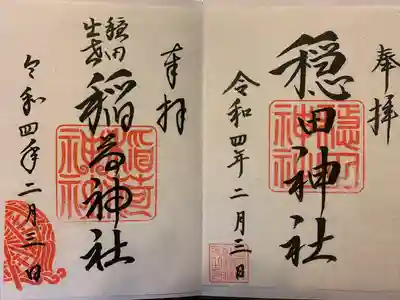 奉拝
穏田神社
令和四年二月三日
奉拝
穏田
出世
稲荷神社
令和四年二月三日
穏田神社